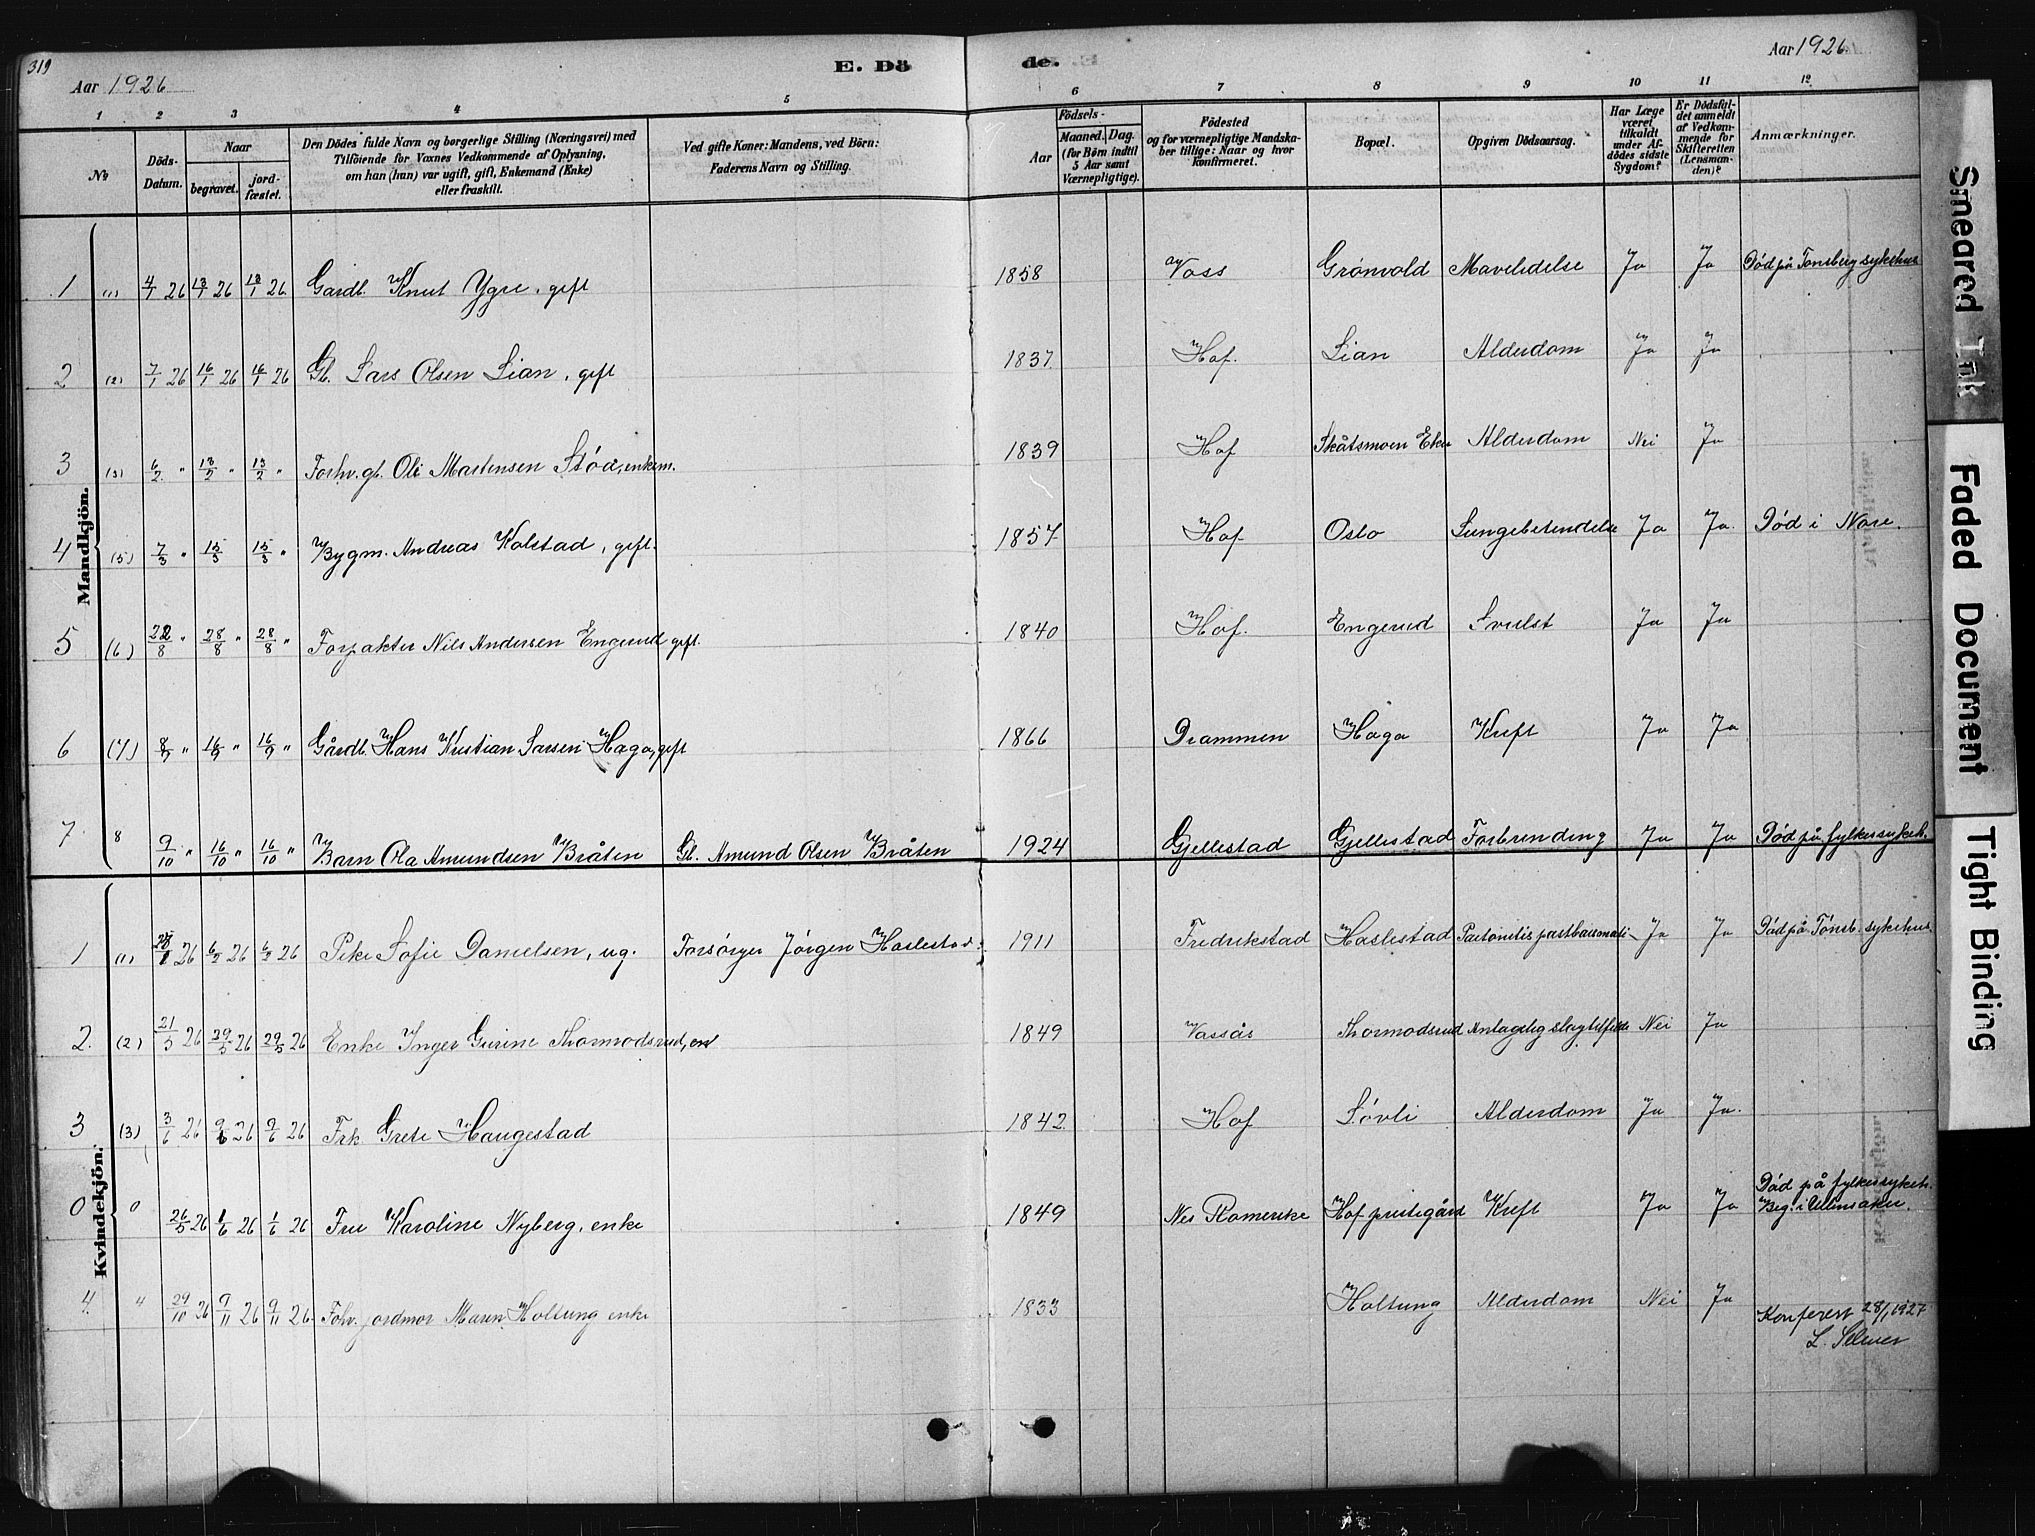 319
Aar 1926
E. Dö
de.
Aar 1926
1 2 3 4 5 6 7 8 9 10 11 12
No
Döds-Datum.
Naar
begravet.
jordfæstet.
Den Dödes fulde Navn og borgerlige Stilling (Næringsvei) med
Tilföiende for Voxnes Vedkommende af Oplysning,
om han (hun) var ugift, gift, Enkemand (Enke)
eller fraskilt.
Ved gifte Koner: Mandens, ved Börn:
Faderens Navn og Stilling.
Födsels-
Aar
Maaned. Dag.
(for Börn indtil
5 Aar samt
Værnepligtige).
Födested
og for værnepligtige Mandska-
ber tillige: Naar og hvor
Konfirmeret.
Bopæl.
Opgiven Dödsaarsag.
Har Læge
været
tilkaldt
under Af-
dödes sidste
Sygdom?
Er Dödsfal-
det anmeldt
af Vedkom-
mende for
Skifteretten
(Lensman-
den)?
Anmærkninger.
Mandkjön.
1 (1) 4/1 26 13/1 26 13/1 26 Gardb. Knut Ygre, gift 1858 Voss Grönvold Mavelidelse Ja Ja Död på Tønsberg sykehus
2 (2) 7/1 26 16/1 26 16/1 26 Gb. Lars Olsen Lian, gift 1837 Hof. Lian Alderdom Ja Ja
3 (3) 6/2 " 13/2 " 13/2 " Forhv. gb. Ole Martinsen Stöd, enkem. 1839 Hof Skåtsmoen Eker Alderdom Nei Ja
4 (5) 7/3 " 15/3 " 15/3 " Bygm. Andreas Kolstad, gift. 1857 Hof Oslo Lungebetendelse Ja Ja. Död i Nore.
5 (6) 22/8 " 28/8 " 28/8 " Forpakter Nils Andersen Engerud gift. 1840 Hof. Engerud Svulst Ja Ja
6 (7) 8/9 " 16/9 " 16/9 " Gårdb. Hans Kristian Larsen Haga, gift 1866 Drammen Haga Kreft Ja Ja
7 8 9/10 " 16/10 " 16/10 " Barn Ola Amundsen Bråten Gb. Amund Olsen Bråten 1924 Gjellestad Gjellestad Forbrending Ja Ja Död på fylkessykeh.
Kvindekjön.
1 (1) 26 6/2 26 6/2 26 Pike Sofie Danielsen, ug. Forsörger Jörgen Haslestad. 1911 Fredrikstad Haslestad Ja Ja Död på Tönsb. sykehus.
2. (2) 21/5 26 29/5 26 29/5 26 Enke Inger Gurine Thormodsrud, en 1849 Vassås Thormodsrud Antagelig slagtilfelde Nei Ja
3 (3) 3/6 26 9/6 26 9/6 26 Frk Grete Haugestad 1842 Hof Sövli Alderdom Ja Ja.
0 0 26/5 26 1/6 26 1/6 26 Fru Karoline Nyberg, enke 1849 Nes Romerike Hof prestegård Kreft Ja Ja Död på fylkessykeh.
Beg. i Ullensaker.
4. 4 29/10 26 9/11 26 9/11 26 Fohv. jordmor Maren Holtung enke 1833 Holtung Alderdom Nei Ja
Konferert 28/1 1927
L. Selmer
Smeared Ink
Faded Document
Tight Binding